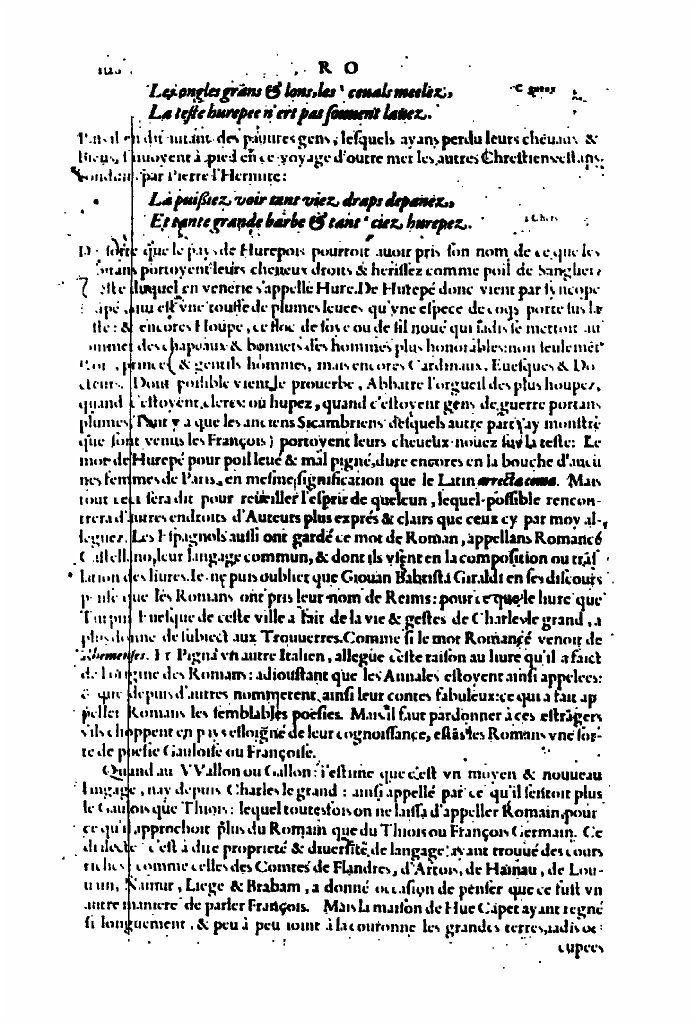 R O
Les ongles grãns & lons, les cevals meslez,
La teste hurepee n'ert pas souvent lavez.
des pauures gens, lesquels ayans perdu leurs cheuaux &
à pied en ce voyage d'outre mer les autres Chrestiens estans
par Pierre l'Hermite:
La puissiez voir tant viez draps depanez,
Et tante grande barbe & tant ciez hurepez.
que le pays de Hurepois pourroit auoir pris son nom de ce que les
portoyent leurs cheueux droits & herissez comme poil de Sanglier
duquel en venerie s'appelle Hure. De Hurepé donc vient par syncope
est vne touffe de plumes leuees qu'vne espece de coqs porte sus la
& encores Houpe, ce floc de soye ou de fil noué qui jadis se mettoit au
des chapeaux & bonnets des hommes plus honorables: non seulemẽt
& gentils hommes, mais encores Cardinaux, Euesques & Do-
cteurs. Dont possible vient le prouerbe, Abbatre l'orgueil des plus houpez,
quand c'estoyent clercs: ou hupez, quand c'estoyent gens de guerre portans
plumes. Tant y a que les anciens Sicambriens (desquels autre part i'ay monstré
que sont venus les François) portoyent leurs cheueux nouez sur la teste: Le
mot de Hurepé pour poil leué & mal pigné, dure encores en la bouche d'aucu
nes femmes de Paris, en mesme signification que le Latin arrecta coma. Mais
tout ceci sera dit pour resueiller l'esprit de quelcun, lequel possible rencon-
trera d'autres endroits d'Auteurs plus exprés & clairs que ceux cy par moy al-
leguez. Les Espagnols aussi ont gardé ce mot de Roman, appellans Romancé
Castellano, leur langage commun, & dont ils vsent en la composition ou trãs
lation des liures. Ie ne puis oublier que Giouan Babtista Giraldi en ses discours
pense que les Romans ont pris leur nom de Reims: pource que le liure que
Turpin Euesque de ceste ville a fait de la vie & gestes de Charles le grand, a
plus donné de subiect aux Trouuerres. Comme si le mot Romancé venoit de
Rhemenses. Et Pigna vn autre Italien, allegue ceste raison au liure qu'il a faict
de l'origine des Romans: adioustant que les Annales estoyent ainsi appelees:
& que depuis d'autres nommerent ainsi leur contes fabuleux: ce qui a fait ap
peller Romans les semblables poësies. Mais il faut pardonner à ces estrãgers
s'ils choppent en pays esloigné de leur cognoissance, estãs les Romans vne sor-
te de poësie Gauloise ou Françoise.
Quand au VVallon ou Gallon: i'estime que c'est vn moyen & nouueau
langage, nay depuis Charles le grand: ainsi appellé par ce qu'il sentoit plus
le Gaulois que Thiois: lequel toutesfois on ne laissa d'appeller Romain, pour
ce qu'il approchoit plus du Romain que du Thiois ou François Germain. Ce
dialecte c'est à dire proprieté & diuersité de langage: ayant trouué des cours
riches, comme celles des Comtes de Flandres, d'Artois, de Hainau, de Lou-
uain, Namur, Liege & Brabant, a donné occasion de penser que ce fust vn
autre maniere de parler François. Mais la maison de Hue Capet ayant regné
si longuement, & peu à peu ioint à la couronne les grandes terres, iadis oc-
cupees